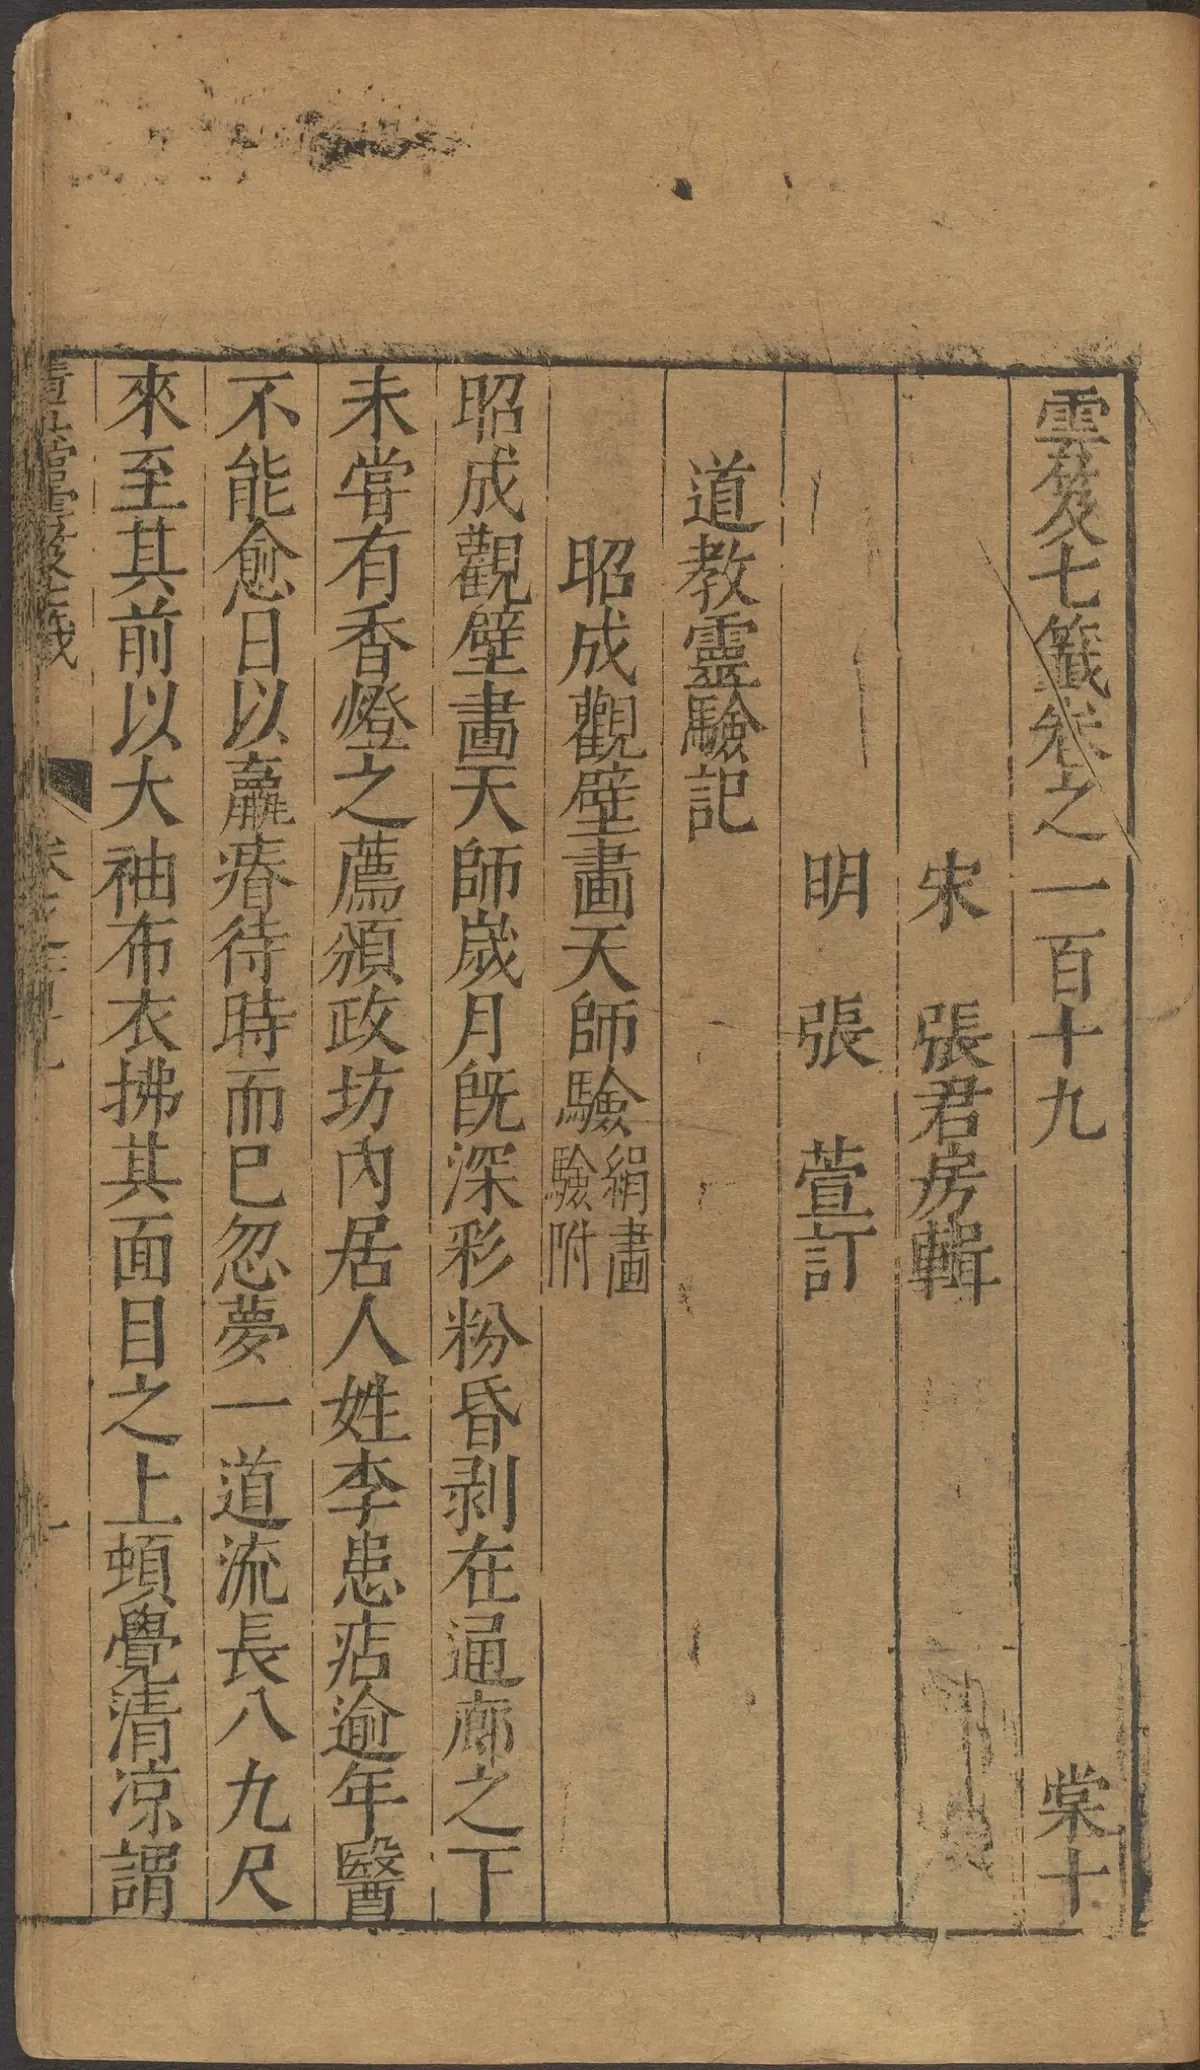 雲笈七籤卷之一百十九 棠十
宋 張君房輯
明 張 萱訂
道教靈驗記
昭成觀壁畫天師驗絹畫驗附
昭成觀壁畫天師嵗月旣深彩粉昏剥在通廊之下
未嘗有香燈之薦頒政坊內居人姓李患痁逾年醫
不能愈日以羸瘠待時而已忽夢一道流長八九尺
來至其前以大袖布衣拂其面目之上頓覺清凉謂